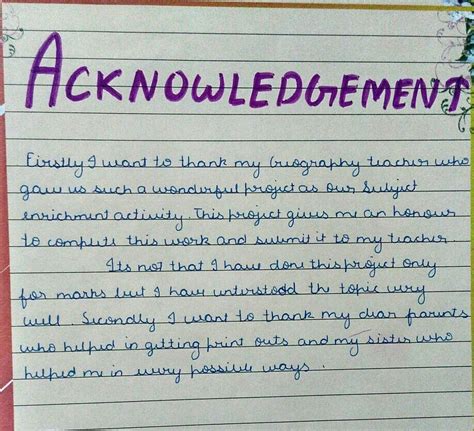 ACKNOWLEDGEMENT
Firstly I want to thank my Geography teacher who
gave us such a wonderful project as our Subject
enrichment activity. This project gives me an honour
to complete this work and submit it to my teacher.
Its not that I have done this project only
for marks but I have unterstood the topic very
well. Secondly I want to thank my dear parents
who helped in getting print outs and my sister who
helped me in every possible ways.